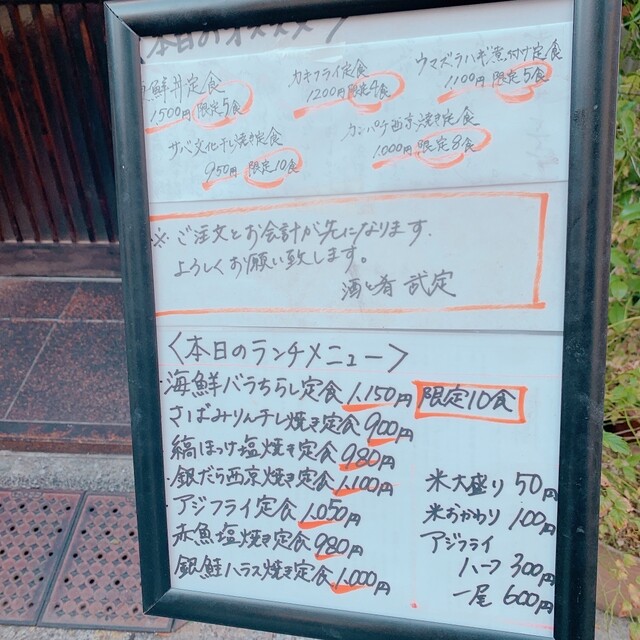 本日のオススメ〉
海鮮丼定食
1500円 限定5食
カキフライ定食
1200円 限定4食
ウマズラハギ煮付け定食
1100円 限定5食
サバ文化干し焼き定食
950円 限定10食
カンパチ西京焼き定食
1000円 限定8食
※ ご注文とお会計が先になります.
よろしくお願い致します。
酒と肴 武定
〈本日のランチメニュー〉
・海鮮バラちらし定食 1,150円 限定10食
さばみりん干し焼き定食 900円
縞ほっけ塩焼き定食 980円
・銀だら西京焼き定食 1,100円
・アジフライ定食 1,050円
赤魚塩焼き定食 980円
銀鮭ハラス焼き定食 1,000円
米大盛り 50円
米おかわり 100円
アジフライ
ハーフ 300円
一尾 600円